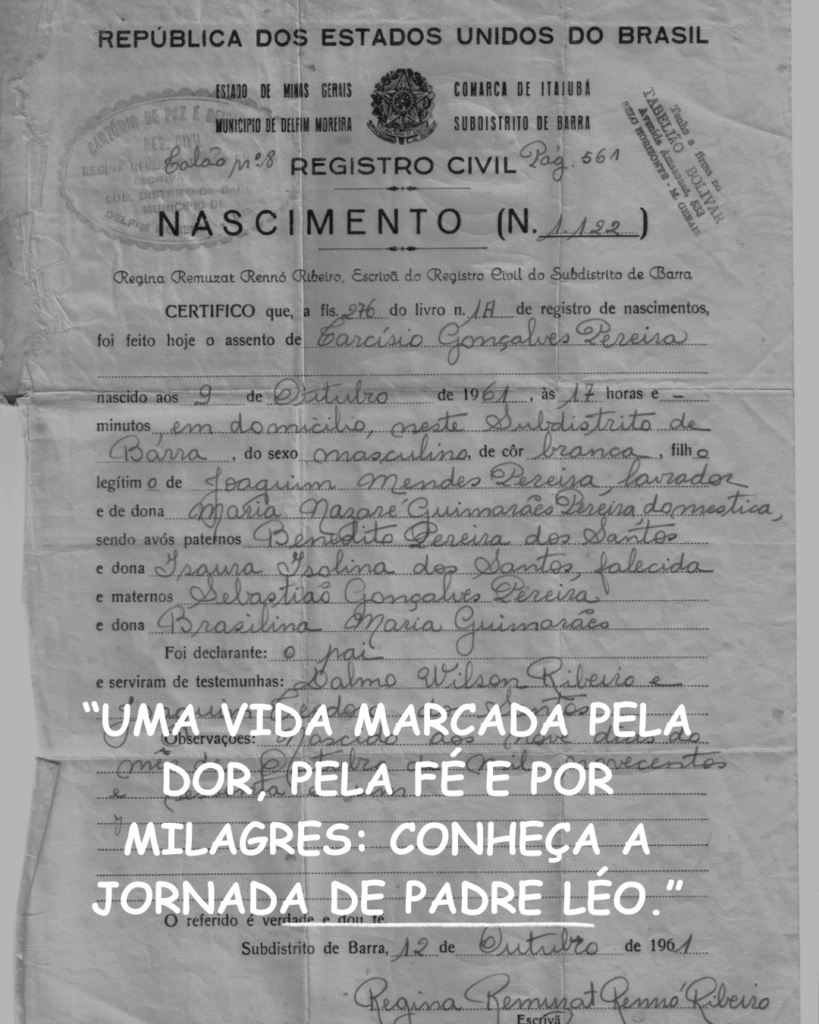 REPÚBLICA DOS ESTADOS UNIDOS DO BRASIL
ESTADO DE MINAS GERAIS
MUNICIPIO DE DELFIM MOREIRA
COMARCA DE ITAJUBÁ
SUBDISTRITO DE BARRA
CARTÓRIO DE PAZ E
REG. CIVIL
SUB. DISTRITO DE
MUNICIPIO DE
DELFIM
Tenho a firma no
TABELIÃO BOLIVAR
Avenida Amazonas, 533
BELO HORIZONTE - M. GERAIS
Talão nº 8 REGISTRO CIVIL Pág. 561
NASCIMENTO (N. 1.122)
Regina Remuzat Rennó Ribeiro, Escrivã do Registro Civil do Subdistrito de Barra
CERTIFICO que, a fls. 276 do livro n. 1A de registro de nascimentos,
foi feito hoje o assento de Tarcísio Gonçalves Pereira
nascido aos 9 de Outubro de 1961, às 17 horas e -
minutos, em domicilio, neste Subdistrito de
Barra, do sexo masculino, de côr branca, filho
legítimo de Joaquim Mendes Pereira, lavrador
e de dona Maria Nazaré Guimarães Pereira, domestica,
sendo avós paternos Benedito Pereira dos Santos
e dona Isaura Isolina dos Santos, falecida
e maternos Sebastião Gonçalves Pereira
e dona Brasilina Maria Guimarães
Foi declarante: o pai
e serviram de testemunhas: Dalmo Wilson Ribeiro e
Santos
Observações: Nascido aos nove dias do
mês de Outubro de mil novecentos
e
“UMA VIDA MARCADA PELA
DOR, PELA FÉ E POR
MILAGRES: CONHEÇA A
JORNADA DE PADRE LÉO.”
O referido é verdade e dou fé.
Subdistrito de Barra, 12 de Outubro de 1961
Regina Remuzat Rennó Ribeiro
Escrivã